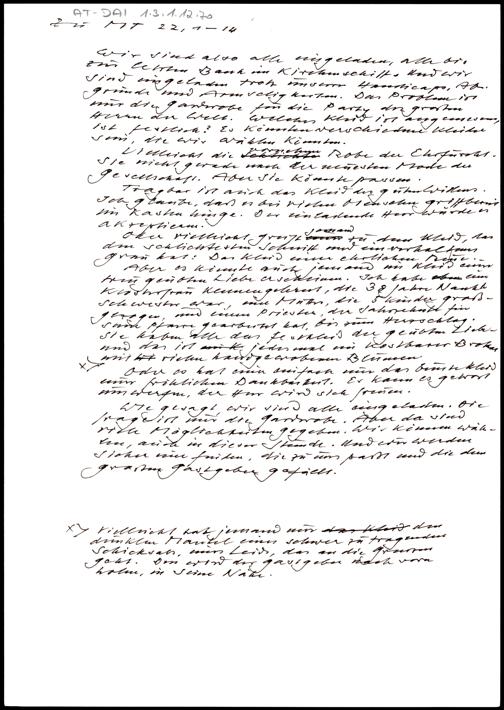 AT-DAI 1.3.1.12.70
Zu MT 22,1-14
Wir sind also alle eingeladen, alle bis
zur letzten Bank im Kirchenschiff. Und wir
sind eingeladen trotz unserer Handicaps, Ab-
gründe und Armseligkeiten. Das Problem ist
nur die Garderobe für die Party des großen
Herrn der Welt. Welches Kleid ist angemessen,
ist festlich? Es könnten verschiedene Kleider
sein, die wir wählen könnten.
Vielleicht die schlichte vornehme Robe der Ehrfurcht.
Sie nicht gerade nach der neuesten Mode der
Gesellschaft. Aber sie könnte passen.
Tragbar ist auch das Kleid des guten Willens.
Ich glaube, daß es bei vielen Menschen griffbereit
im Kasten hinge. Der einladende Herr würde es
akzeptieren.
Oder vielleicht greift jemand zu dem Kleid, das
den schlichtesten Schnitt und ein verhaltenes
grau hat: Das Kleid einer ehrlichen Reue.
Aber es könnte auch jemand im Kleid einer
treu geübten Liebe erscheinen. Ich habe eine
Klosterfrau kennengelernt, die 38 Jahre Nacht
schwester war, eine Mutter, die 5 Kinder groß-
gezogen, und einen Priester, der Jahrzehnte für
seine Pfarre gearbeitet hat, bis zum Herzschlag.
Sie haben alle das Festkleid der geübten Liebe
und das ist auch jedesmal ein kostbarer Brokat
mit vielen handgewobenen Blumen
x) Oder es hat einer einfach nur das bunte Kleid
einer fröhlichen Dankbarkeit. Er kann es getrost
umwerfen, der Herr wird sich freuen.
Wie gesagt, wir sind alle eingeladen. Die
Frage ist nur die Garderobe. Aber da sind
viele Möglichkeiten gegeben. Wir können wäh-
len, auch in dieser Stunde. Und wir werden
sicher eine finden, die zu uns paßt und die dem
großen Gastgeber gefällt.
x) Vielleicht hat jemand nur das Kleid den
dunklen Mantel eines schwer zu tragenden
Schicksals, eines Leids, das an die Grenzen
geht. Den wird der Gastgeber nach vorn
holen, in seine Nähe.